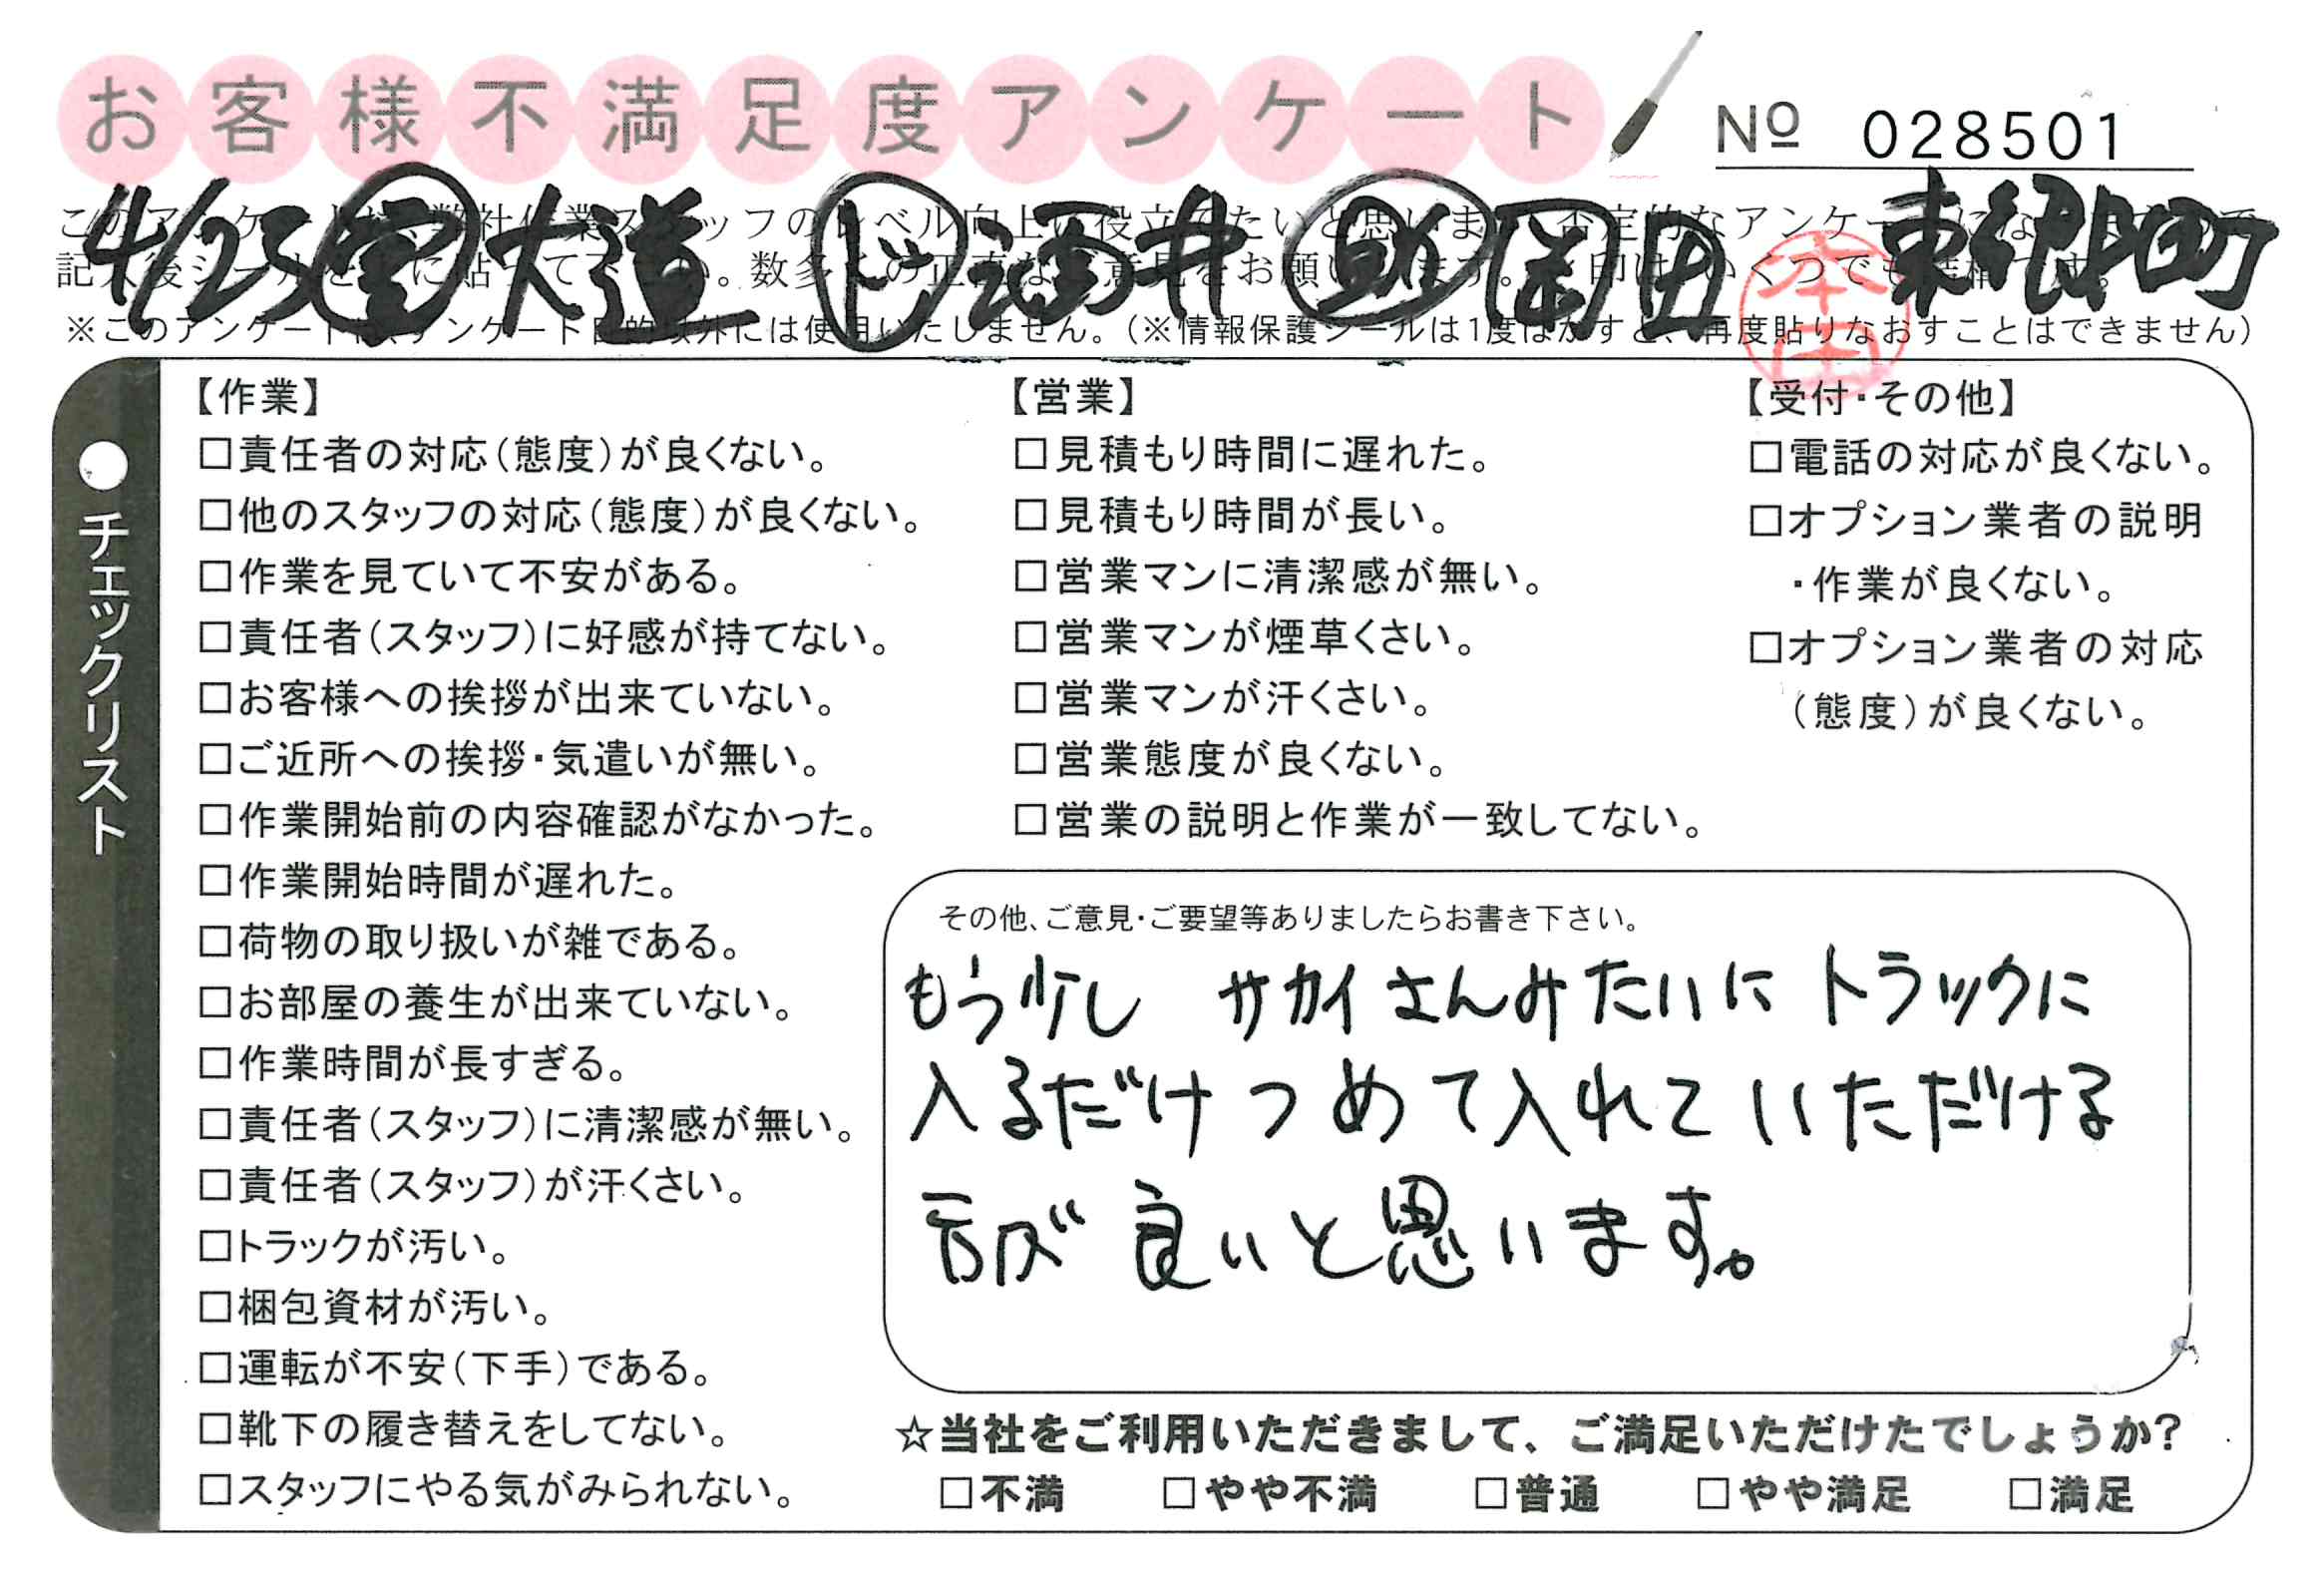 お客様不満足度アンケート
№ 028501
4/25 営 大道 ド 酒井 助 岡田 東郷町
本田
※このアンケートは、アンケート目的以外には使用いたしません。（※情報保護シールは1度はがすと、再度貼りなおすことはできません）
●チェックリスト
【作業】
□責任者の対応（態度）が良くない。
□他のスタッフの対応（態度）が良くない。
□作業を見ていて不安がある。
□責任者（スタッフ）に好感が持てない。
□お客様への挨拶が出来ていない。
□ご近所への挨拶・気遣いが無い。
□作業開始前の内容確認がなかった。
□作業開始時間が遅れた。
□荷物の取り扱いが雑である。
□お部屋の養生が出来ていない。
□作業時間が長すぎる。
□責任者（スタッフ）に清潔感が無い。
□責任者（スタッフ）が汗くさい。
□トラックが汚い。
□梱包資材が汚い。
□運転が不安（下手）である。
□靴下の履き替えをしてない。
□スタッフにやる気がみられない。
【営業】
□見積もり時間に遅れた。
□見積もり時間が長い。
□営業マンに清潔感が無い。
□営業マンが煙草くさい。
□営業マンが汗くさい。
□営業態度が良くない。
□営業の説明と作業が一致してない。
【受付・その他】
□電話の対応が良くない。
□オプション業者の説明
・作業が良くない。
□オプション業者の対応
（態度）が良くない。
その他、ご意見・ご要望等ありましたらお書き下さい。
もう少し サカイさんみたいに トラックに
入るだけつめて入れていただける
方が 良いと思います。
☆当社をご利用いただきまして、ご満足いただけたでしょうか？
□不満 □やや不満 □普通 □やや満足 □満足